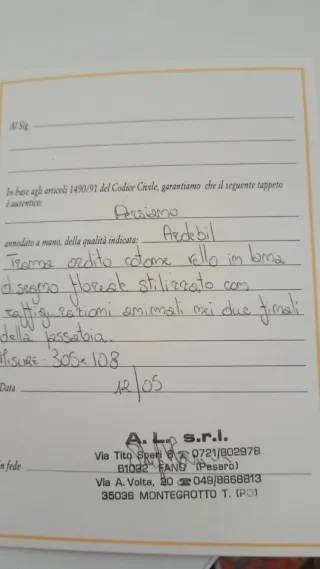 Al Sig.
In base agli articoli 1490/91 del Codice Civile, garantiamo che il seguente tappeto
è autentico:
Persiano
annodato a mano, della qualità indicata: Ardebil
Trama ordito cotone vello in lana
disegno floreale stilizzato con
raffigurazioni animali nei due finali
della passatoia.
MISURE 305x108
Data 12/05
A. L. s.r.l.
Via Tito Speri 8 ☎ 0721/802978
61032 FANO (Pesaro)
In fede
Via A. Volta, 20 ☎ 049/8668813
35036 MONTEGROTTO T. (PD)